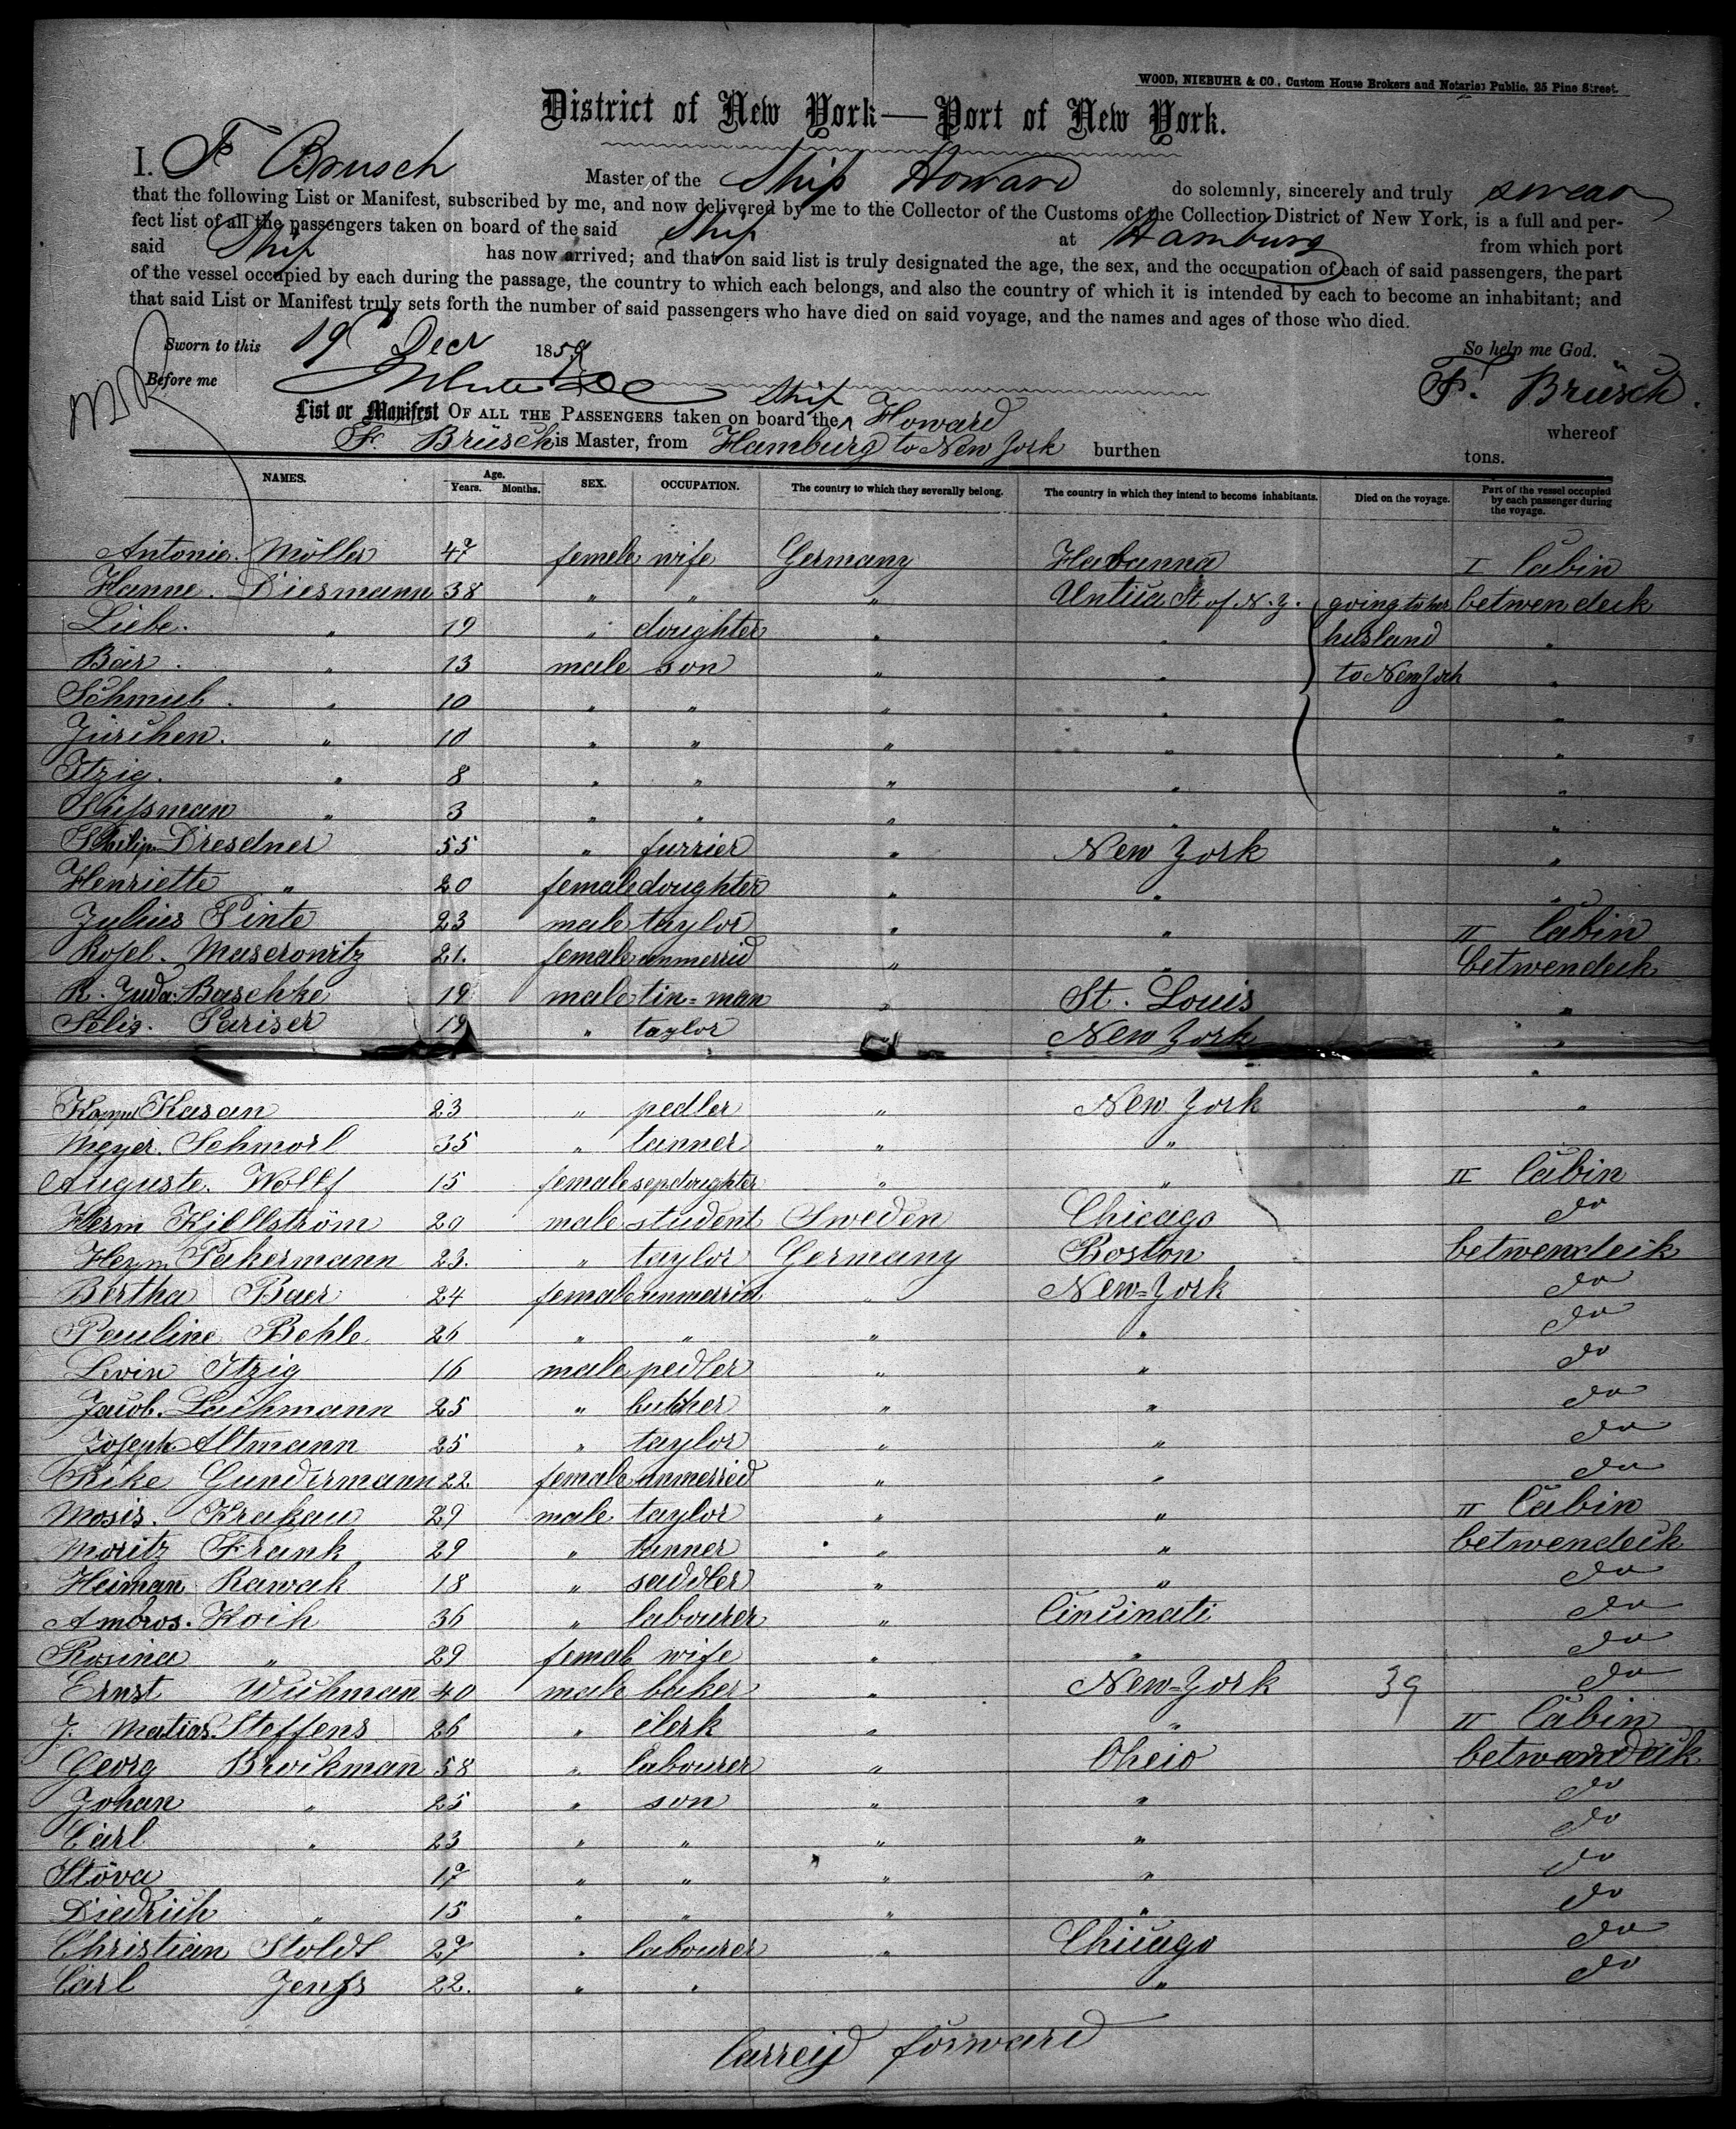 WOOD, NIEBUHR & CO., Custom House Brokers and Notaries Public, 25 Pine Street.
District of New York—Port of New York.
I, F Brüsch Master of the Ship Howard do solemnly, sincerely and truly swear
that the following List or Manifest, subscribed by me, and now delivered by me to the Collector of the Customs of the Collection District of New York, is a full and per-
fect list of all the passengers taken on board of the said Ship at Hamburg from which port
said Ship has now arrived; and that on said list is truly designated the age, the sex, and the occupation of each of said passengers, the part
of the vessel occupied by each during the passage, the country to which each belongs, and also the country of which it is intended by each to become an inhabitant; and
that said List or Manifest truly sets forth the number of said passengers who have died on said voyage, and the names and ages of those who died.
Sworn to this 19 Decr 1859 So help me God.
Before me F. Brüsch.
List or Manifest OF ALL THE PASSENGERS taken on board the Ship Howard whereof
F. Brüsch is Master, from Hamburg to New York burthen tons.
NAMES. Age. Years. Months. SEX. OCCUPATION. The country to which they severally belong. The country in which they intend to become inhabitants. Died on the voyage. Part of the vessel occupied by each passenger during the voyage.
Antonie. Möller 47 female wife Germany Habanna I Cabin
Hanne. Diesmann 38 " " " Untica St of N.Y. going to her betwendeck
Liebe. " 19 " doughter " " husland "
Bär. " 13 male son " " to New York "
Schmul. " 10 " " " " "
Jürchen. " 10 " " " " "
Itzig. " 8 " " " " "
Süssman " 3 " " " " "
Philip Dresdner 55 " furrier " New York "
Henriette " 20 female doughter " " "
Julius Pinte 23 male taylor " " II Cabin
Rosel. Maserowitz 21. female unmerrid " " betwendeck
R. Juda. Baschke 19 male tin=man " St. Louis "
Selig. Pariser 19 " taylor " New York "
Kasan 23 " pedler " New York "
Meyer. Schmorl 35 " tanner " "
Auguste. Wolff 15 female sepdoughter " " II Cabin
Herm Kjellström 20 male student Sweden Chicago do
Herm Pakermann 23. " taylor Germany Boston betwendeck
Bertha Baer 24 female unmerrid " New=York do
Pauline Behle 26 " " " " do
Levin Itzig 16 male pedler " " do
Jacob. Lachmann 25 " butcher " " do
Joseph. Altmann 25 " taylor " " do
Rike Gundermann 22. female unmerried " " do
Mosis. Krakau 29 male taylor " " II Cabin
Moritz Frank 29 " tanner " " betwendeck
Heiman Rawak 18 " saddler " " do
Ambros. Koch 36 " labourer " Cincinati do
Rosina " 29 female wife " " do
Ernst Wichman 40 male baker " New=York 39 do
J. Matias. Steffens 26 " clerk " " II Cabin
Georg Brockman 58 " labourer " Oheio betwendeck
Johan " 25 " son " " do
Carl " 23 " " " " do
Stöva 17 " " " " do
Diedrich " 15 " " " " do
Christian Stoldt 27 " labourer " Chicago do
Carl Jenss 22. " " " do
Carreid forward